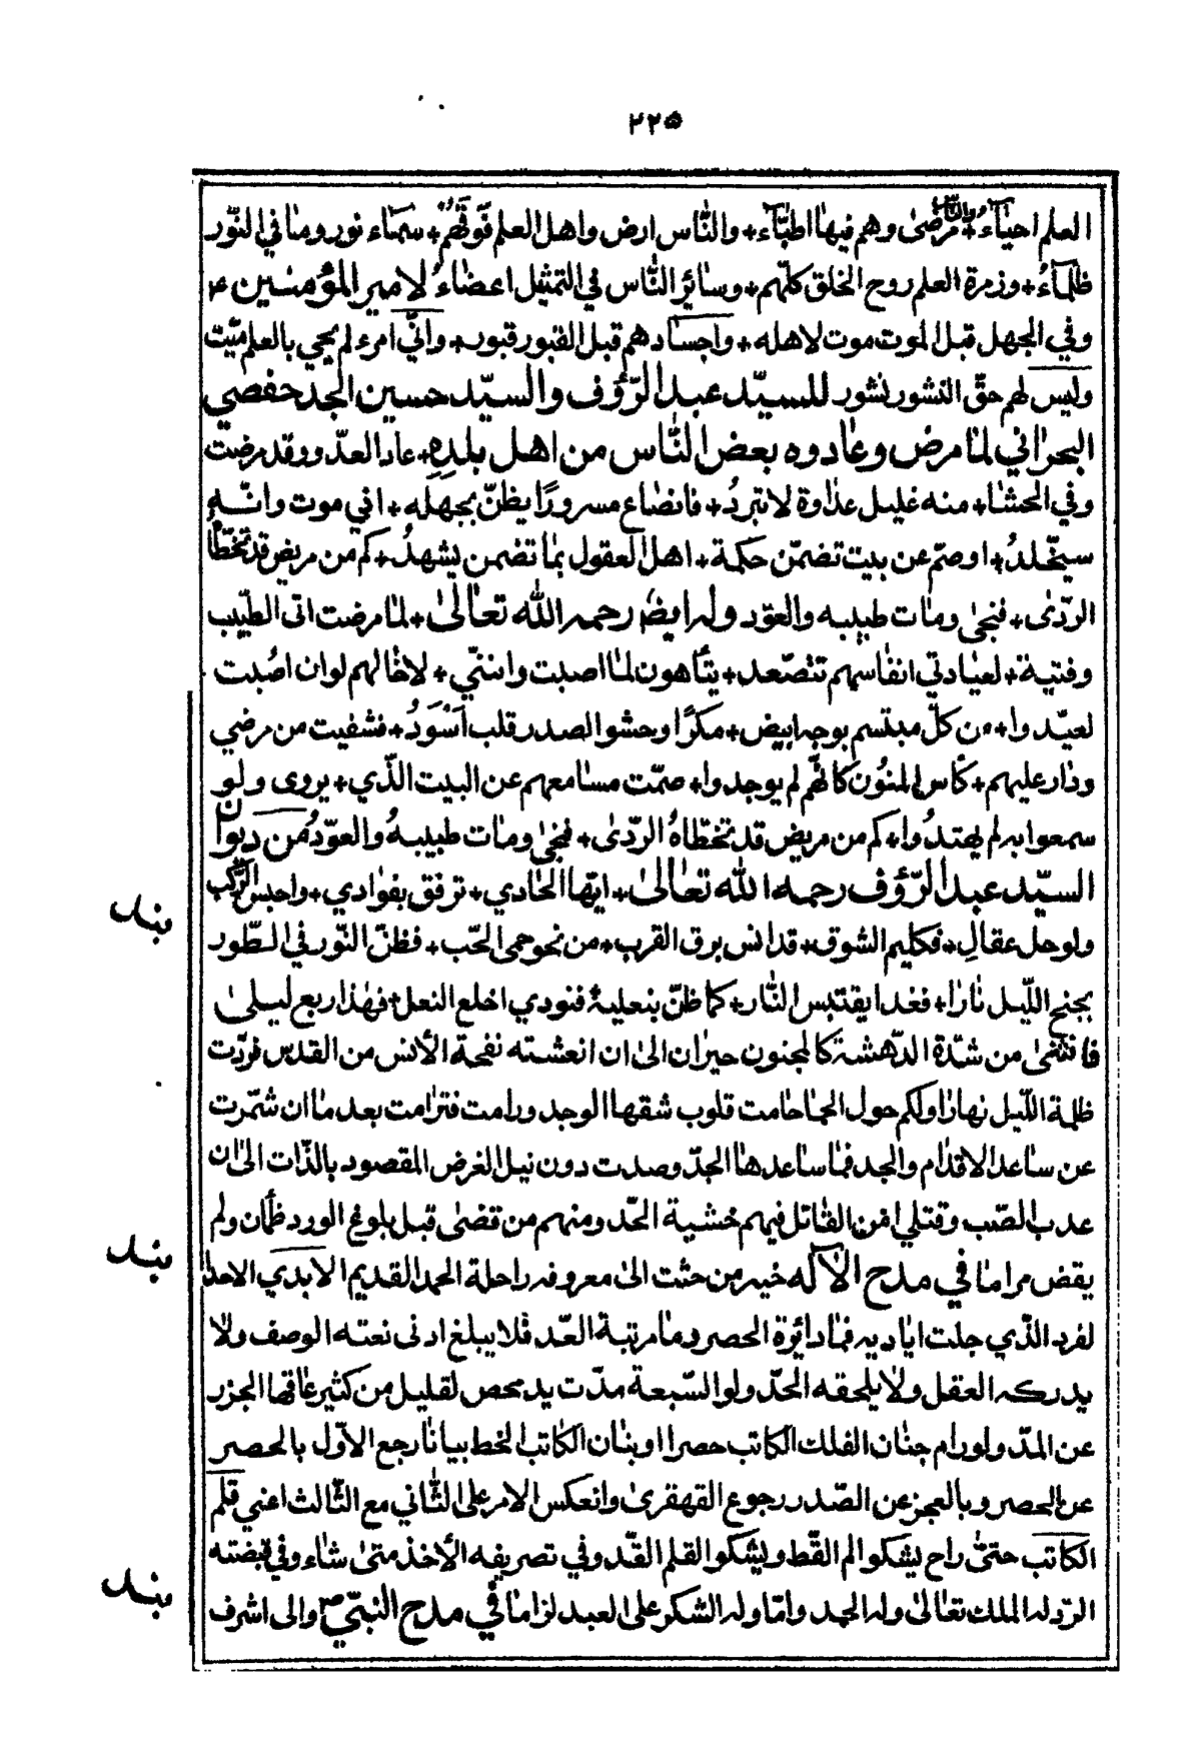 ٢٢٥
العلم احياء٭ والناس مرضى وهم فيها اطبّاء٭ والنّاس ارض واهل العلم فوقهم٭ سماء نور وما في النّور
ظلماءُ٭ وزمرة العلم روح الخلق كلّهم٭ وسائر النّاس في التمثيل اعضاءُ لامير المؤمنين ع
وفي الجهل قبل الموت موت لاهله٭ واجسادهم قبل القبور قبور٭ وانّي امرء لم يحي بالعلم ميّت
وليس لهم حقّ النشور نشور للسيّد عبد الرّؤف والسيّد حسين الجد حفصي
البحراني لما مرض وعادوه بعض النّاس من اهل بلده٭ عاد العدّو وقد مرضت
وفي الحشا٭ منه غليل عداوة لا تبردُ٭ فانصاع مسرورًا يظنّ بجهله٭ اني موت وانّه
سيخّلدُ٭ او صمّ عن بيت تضمّن حكمة٭ اهل العقول بما تضمن يشهدُ٭ كم من مريض قد تخطّاهُ
الرّدى٭ فنجى ومات طبيبه والعوّد وله ايضا رحمه الله تعالى٭ لما مرضت اتى الطّبيب
وفتية٭ لعيادتي انفاسهم تتصّعد٭ يتأهون لما اصبت واننّي٭ لاخالهم لوان اصُبت
لعيّدوا٭ من كلّ مبتسم بوجه ابيض٭ مكرًا وحشو الصدر قلب اسْودُ٭ فشفيت من مرضي
ودار عليهم٭ كأس المنُون كانهّم لم يوجدوا٭ صمّت مسامعهم عن البيت الّذي٭ يروى ولو
سمعوا به لم يهتدُوا٭ كم من مريض قد تخطّاهُ الرّدى٭ فنجى ومات طبيبهُ والعوّدُ من ديوان
السيّد عبد الرّؤف رحمه الله تعالى٭ ايّها الحادي٭ ترفق بفوادي٭ واحبس الرّكب
ولو حل عقالِ٭ فكليم الشوق٭ قد انس برق القرب٭ من نحو حمى الحّب٭ فظنّ النّور في الطّور
بجنح اللّيل نارا٭ فغدا يقتبس النّار٭ كما ظنّ بنعليه فنودي اخلع النعل٭ فهذا ربع ليلى
فانثنى من شدّة الدّهشة كالمجنون حيران الى ان انعشته نفحة الأنس من القدس فردّت
ظلمة اللّيل نهارا ولكم حول الحما حامت قلوب شقها الوجد ورامت فترامت بعد ما ان شمّرت
عن ساعد الاقدام والجد فما ساعدها الجدّ وصدت دون نيل الغرض المقصود بالذّات الى ان
عدب الصّب وقتلي امن القاتل فيهم خشية الحّد ومنهم من قضى قبل بلوغ الورد ظمأن ولم
يقض مراما في مدح الآله خير من حثت الى معروفه راحلة الحمد القديم الابدي الاحد
لفرد الّذي جلت اياديه فما دائرة الحصر وما مرتبة العّد فلا يبلغ ادنى نعته الوصف ولا
يدركه العقل ولا يلحقه الحدّ ولو السّبعة مدّت يد محص لقليل من كثير عاقها الجزر
عن المدّ ولو رام جنان الفلك الكاتب حصرا او بنان الكاتب الخط بيانا رجع الاوّل بالحصر
عن الحصر وبالعجز عن الصّدر رجوع القهقرى وانعكس الامر على الثّاني مع الثّالث اعني قلم
الكاتب حتىّ راح يشكو الم القّط ويشكو القلم القّد وفي تصريفه الأخذ متى شاء وفي قبضته
الرّد له الملك تعالى وله الحمد وامّا وله الشكر على العبد لزاما في مدح النبيّ ص والى اشرف
مبند
مبند
مبند